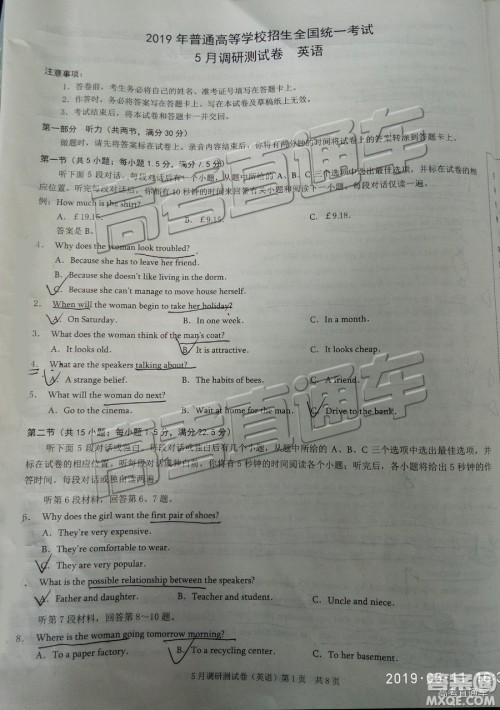 2019 年普通高等学校招生全国统一考试
5 月调研测试卷 英语
注意事项：
1. 答卷前，考生务必将自己的姓名、准考证号填写在答题卡上。
2. 作答时，务必将答案写在答题卡上，写在本试卷及草稿纸上无效。
3. 考试结束后，将本试卷和答题卡一并交回。
第一部分 听力（共两节，满分 30 分）
做题时，请先将答案标在试卷上。录音内容结束后，你将有两分钟的时间将试卷上的答案转涂到答题卡上。
第一节（共 5 小题；每小题 1.5 分，满分 7.5 分）
听下面 5 段对话。每段对话后有一个小题，从题中所给的 A、B、C 三个选项中选出最佳选项，并标在试卷的相
应位置。听完每段对话后，你都有 10 秒钟的时间来回答有关小题和阅读下一小题。每段对话仅读一遍。
例：How much is the shirt?
A. £ 19.15. B. £ 9.15. C. £ 9.18.
答案是 B。
Why does the woman look troubled?
A. Because she has to leave her friend.
B. Because she doesn't like living in the dorm.
C. Because she can't manage to move house herself.
2. When will the woman begin to take her holiday?
A. On Saturday. B. In one week. C. In a month.
3. What does the woman think of the man's coat?
A. It looks old. B. It is attractive. C. It looks cheap.
4. What are the speakers talking about?
A. A strange belief. B. The habits of bees. C. A friend.
5. What will the woman do next?
A. Go to the cinema. B. Wait at home for the man. C. Drive to the bank.
第二节（共 15 小题；每小题 1.5 分，满分 22.5 分）
听下面 5 段对话或独白。每段对话或独白后有几个小题，从题中所给的 A、B、C 三个选项中选出最佳选项，并
标在试卷的相应位置。听每段对话或独白前，你将有 5 秒钟的时间阅读各个小题；听完后，各小题将给出 5 秒钟的作
答时间。每段对话或独白读两遍。
听第 6 段材料，回答第 6、7 题。
6. Why does the girl want the first pair of shoes?
A. They're very expensive.
B. They're comfortable to wear.
C. They are very popular.
What is the possible relationship between the speakers?
A. Father and daughter. B. Teacher and student. C. Uncle and niece.
听第 7 段材料，回答第 8～10 题。
8. Where is the woman going tomorrow morning?
A. To a paper factory. B. To a recycling center. C. To her basement.
5 月调研测试卷（英语）第 1 页 共 8 页
高考直通车
高考直通车
高考直通车
答案圈
MXQE.COM